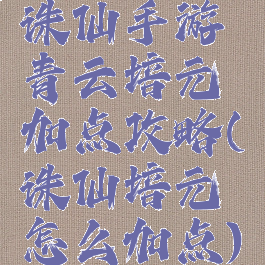 诛仙手游
青云培元
加点攻略(
诛仙培元
怎么加点)